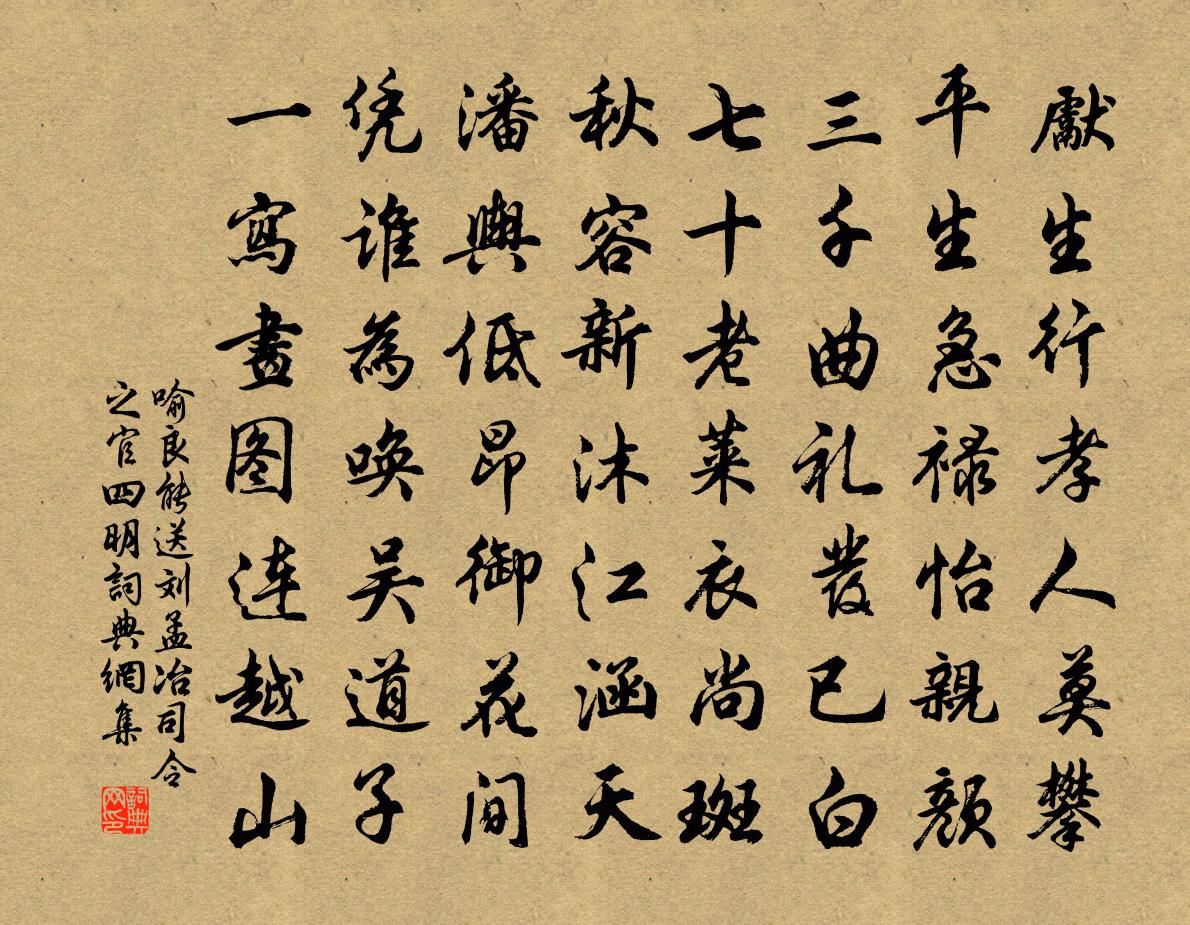 獻生行孝人莫攀
平生急禄怡親顏
三千曲礼發已白
七十老萊衣尚斑
秋容新沐江涵天
潘輿低昂御花間
凭誰為唤吴道子
一寫畫图連越山
喻良能送刘孟冶司令
之官四明詞典網集
詞典网印